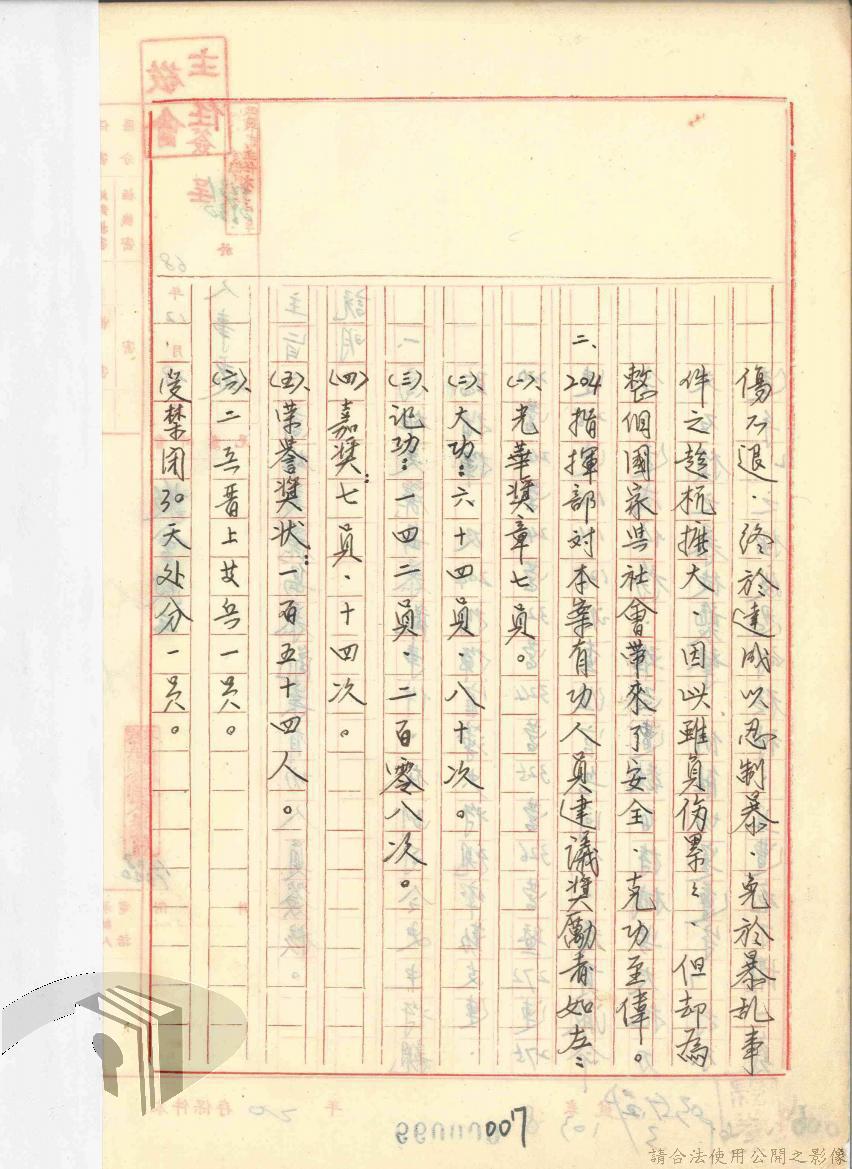 傷不退.終於達成以忍制暴、免於暴乱事
件之趁机擴大、因此雖負伤累々、但却為
整個國家與社會帶來了安全.克功至偉。
二、204指揮部对本案有功人員建議奬勵者如左：
(一)、光華奬章七員。
(二)、大功：六十四員、八十次。
(三)、記功：一四二員、二百零八次。
(四)、嘉奬：七員、十四次。
(五)、荣譽奬状：一百五十四人。
(六)、二兵晋上女兵一員。
受禁闭30天处分一员。
007
請合法使用公開之影像